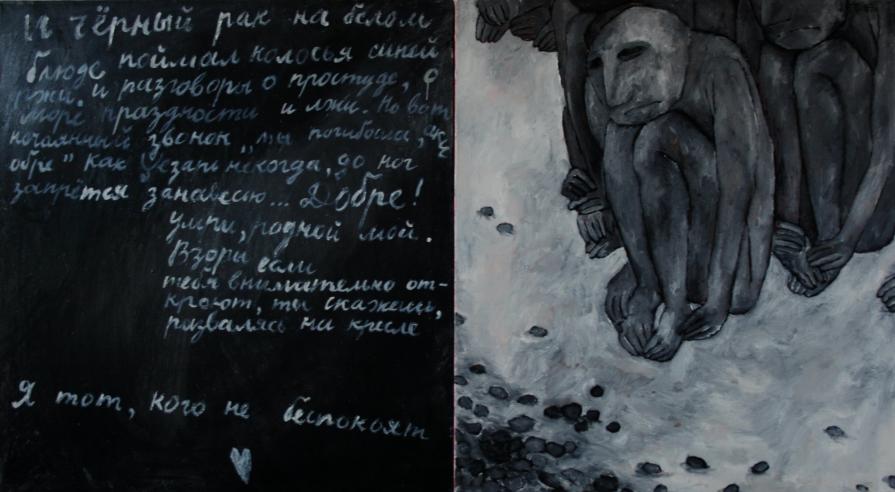 И чёрный рак на белом
блюде поймал колосья синей
ржи. и разговоры о простуде, о
море праздности и лжи. Но вот
нечаянный звонок „мы погибоша, аки
обре" как Цезарь некогда, до ног
запрётся занавесью... Добре!
умри, родной мой.
Взоры если
тебя внимательно от-
кроют, ты скажешь,
развалясь на кресле
Я тот, кого не беспокоят